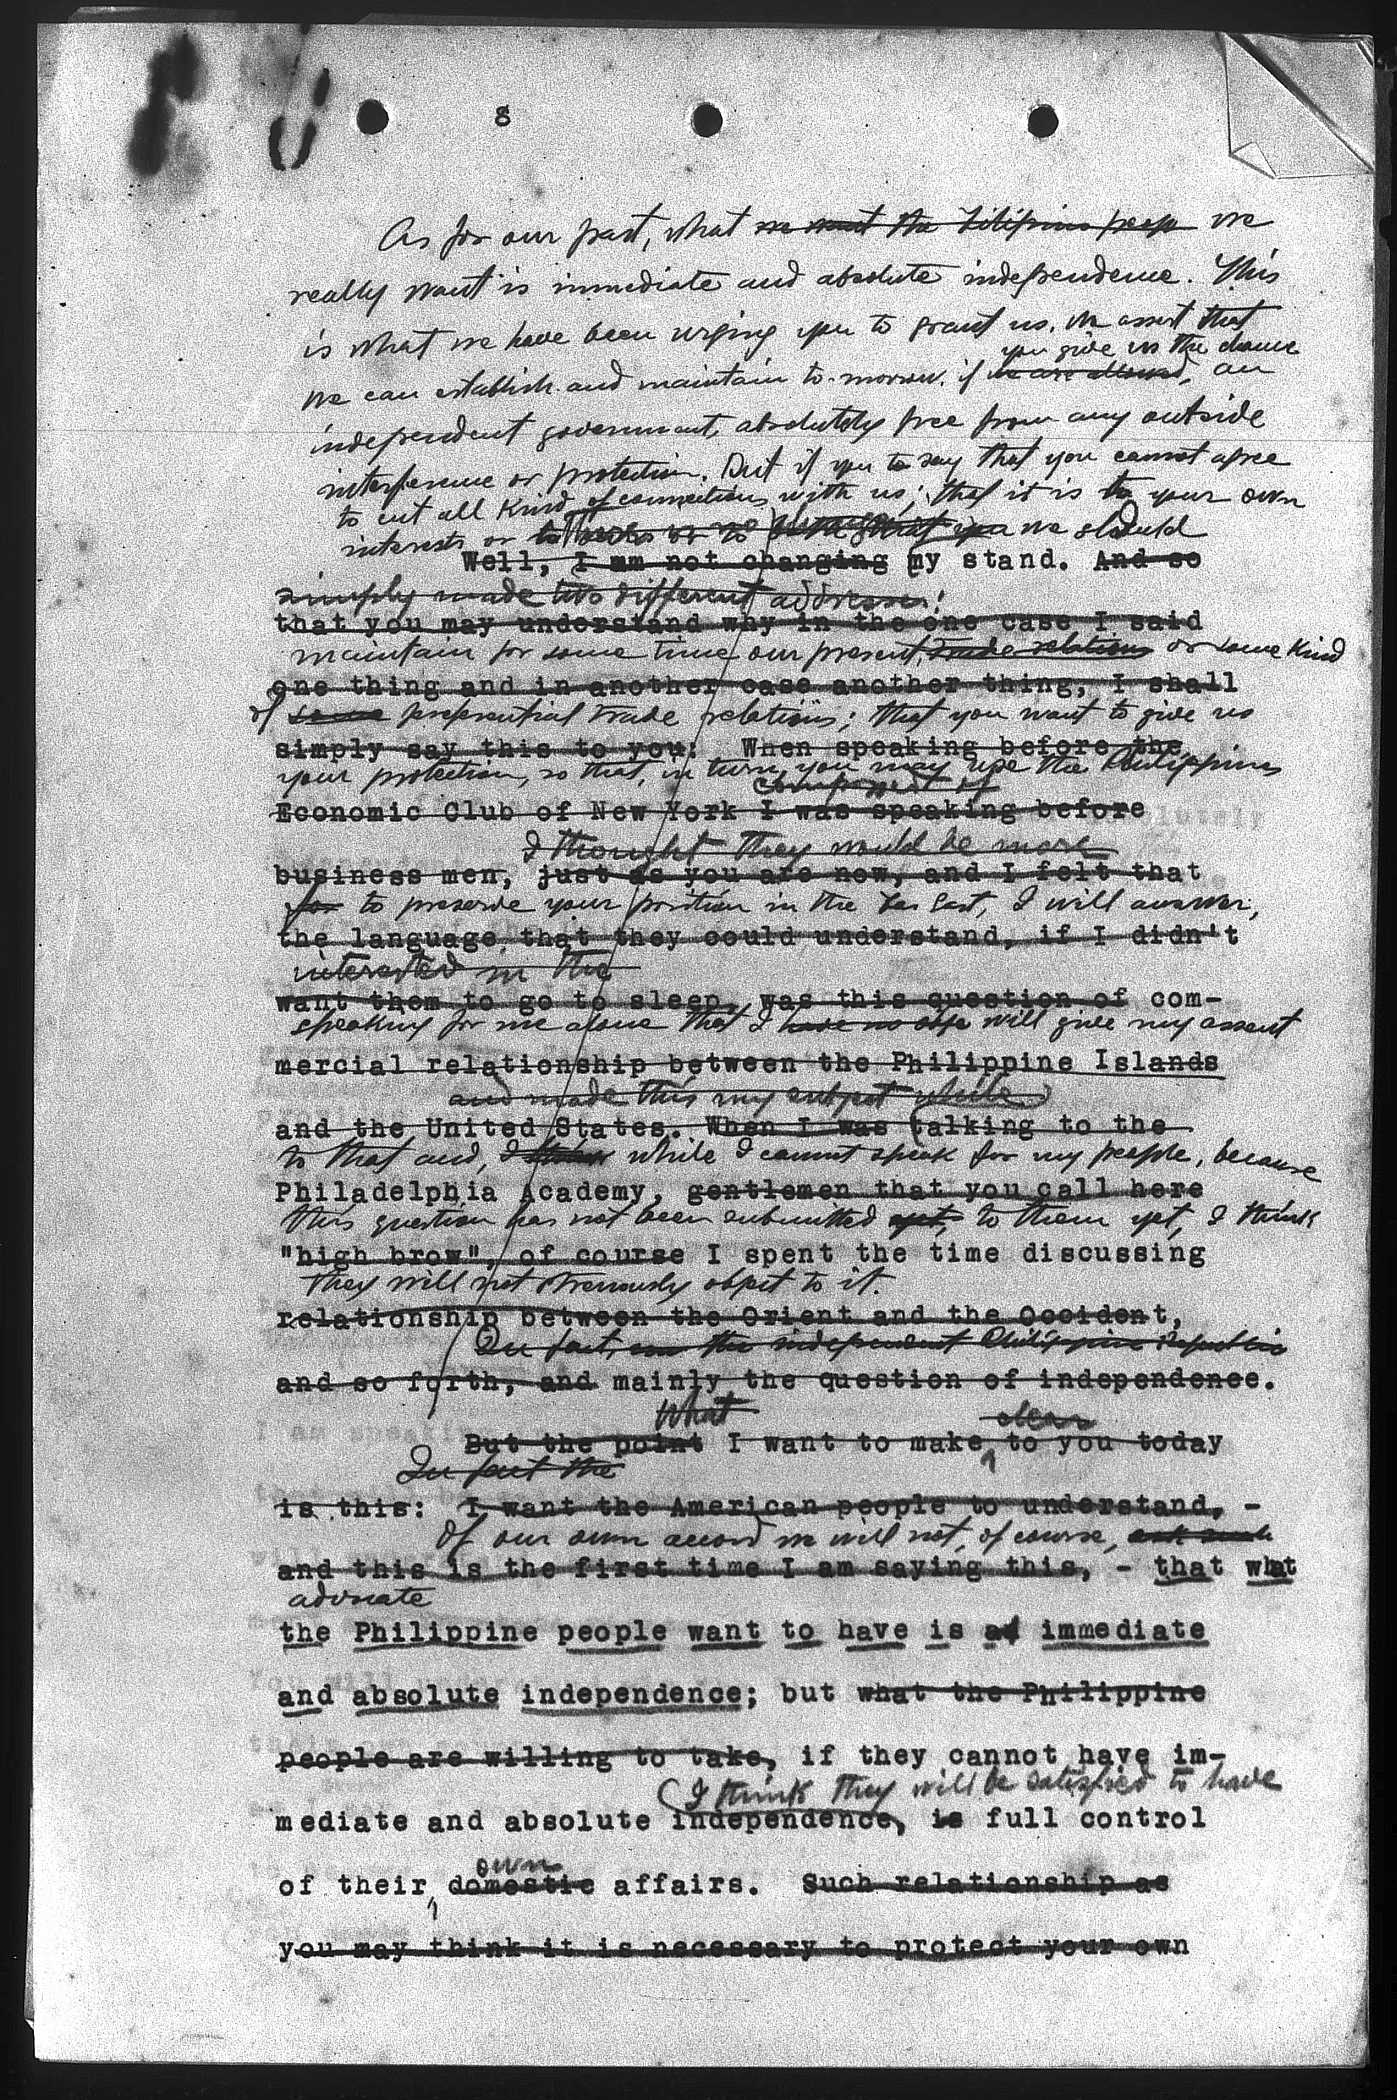 8
As for our part, what we want the Filipino peop we
really want is immediate and absolute independence. This
is what we have been urging you to grant us. We assert that
you give us the chance
we can establish and maintain to-morrow, if we are allowed, an
independent government, absolutely free from any outside
interference or protection. But if you to say that you cannot agree
to cut all kind of connections with us; that it is to your own
interests or to or to that you we should
Well, I am not changing my stand. And so
simply made two different addresses!
that you may understand why in the one case I said
maintain for some time our present, trade relations or some kind
one thing and in another case another thing, I shall
of some preferential trade relations; that you want to give us
simply say this to you: When speaking before the
your protection, so that, in turn, you may use the Philippines
composed of
Economic Club of New York I was speaking before
I thought they would be more
business men, just as you are now, and I felt that
for to preserve your position in the Far East, I will answer,
the language that they could understand, if I didn't
interested in the
want them to go to sleep, was this question of com-
speaking for me alone that I have no obje will give my assent
mercial relationship between the Philippine Islands
and made this my subject while
and the United States. When I was talking to the
to that and, I while I cannot speak for my people, because
Philadelphia Academy, gentlemen that you call here
this question has not been submitted yet, to them yet, I think
"high brow", of course I spent the time discussing
they will not strenuously object to it.
relationship between the Orient and the Occident,
In fact, the independent Philippine Republic
and so forth, and mainly the question of independence.
What clear
But the point I want to make to you today
In fact the
is this: I want the American people to understand, -
Of our own accord we will not, of course, ask such
and this is the first time I am saying this, - that what
advocate
the Philippine people want to have is immediate
and absolute independence; but what the Philippine
people are willing to take, if they cannot have im-
I think they will be satisfied to have
mediate and absolute independence, is full control
own
of their domestic affairs. Such relationship as
you may think it is necessary to protect your own